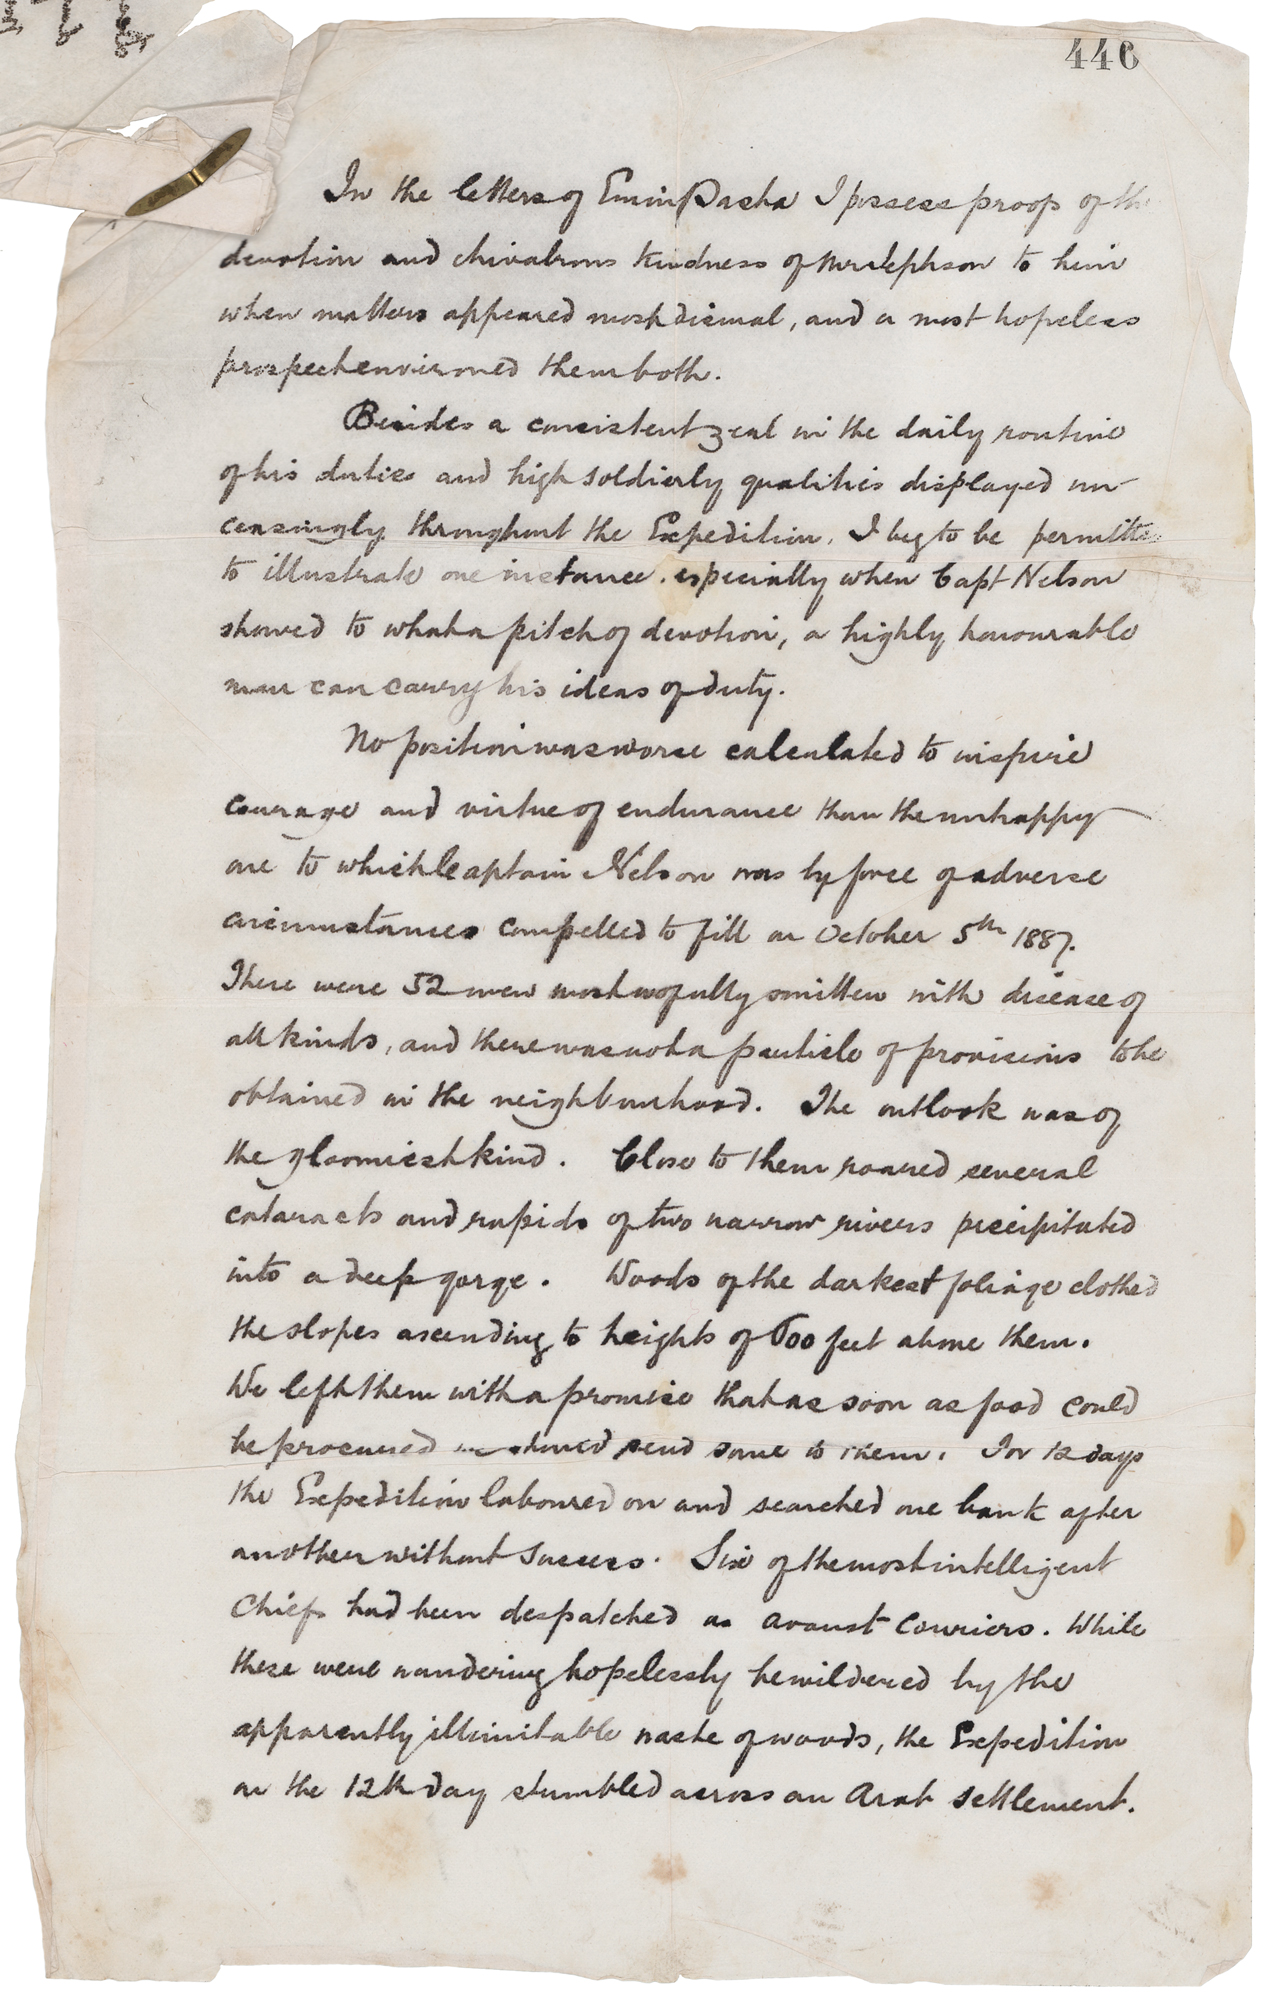 446
In the letters of Emin Pasha I possess proofs of the
devotion and chivalrous kindness of Mr Jephson to him
when matters appeared most dismal, and a most hopeless
prospect environed them both.
Besides a consistent zeal in the daily routine
of his duties and high soldierly qualities displayed un-
ceasingly throughout the Expedition. I beg to be permitted
to illustrate one instance. especially when Capt Nelson
showed to what a pitch of devotion, a highly honourable
man can carry his ideas of duty.
No position was worse calculated to inspire
courage and virtue of endurance than the unhappy
one to which Captain Nelson was by force of adverse
circumstances compelled to fill on October 5th 1887.
There were 52 men most wofully smitten with disease of
all kinds, and there was not a particle of provisions to be
obtained in the neighbourhood. The outlook was of
the gloomiest kind. Close to them roared several
cataracts and rapids of two narrow rivers precipitated
into a deep gorge. Woods of the darkest foliage clothed
the slopes ascending to heights of 600 feet above them.
We left them with a promise that as soon as food could
be procured we should send some to them. For 12 days
the Expedition laboured on and searched one bank after
another without success. Six of the most intelligent
Chiefs had been despatched as avaunt couriers. While
these were wandering hopelessly bewildered by the
apparently illimitable waste of woods, the Expedition
on the 12th day stumbled across an Arab settlement.